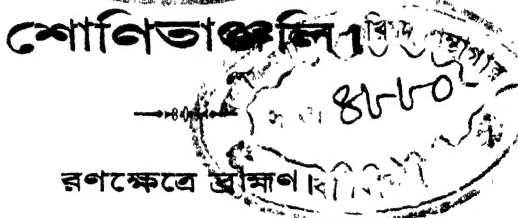 শোণিতাঞ্জলি।
৪৮৮০
রণক্ষেত্রে ব্রাহ্মণ।